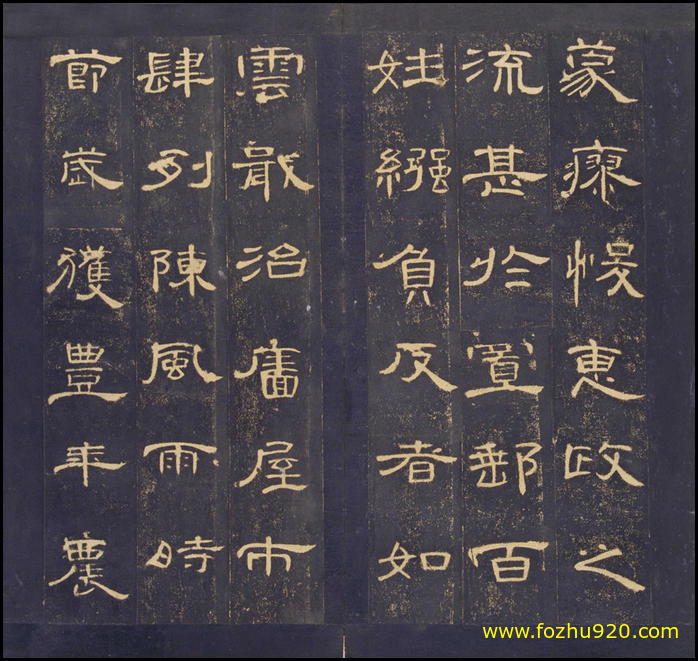 蒙瘳悛惠政之
流甚於置郵百
姓繦負反者如
雲戢治廧屋市
肆列陳風雨時
節歲獲豐年農
www.fozhu920.com